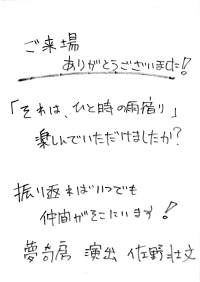 ご来場
ありがとうございました!
「それは、ひと時の雨宿り」
楽しんでいただけましたか?
振り返ればいつでも
仲間がそこにいます!
夢奇房 演出 佐野壮文